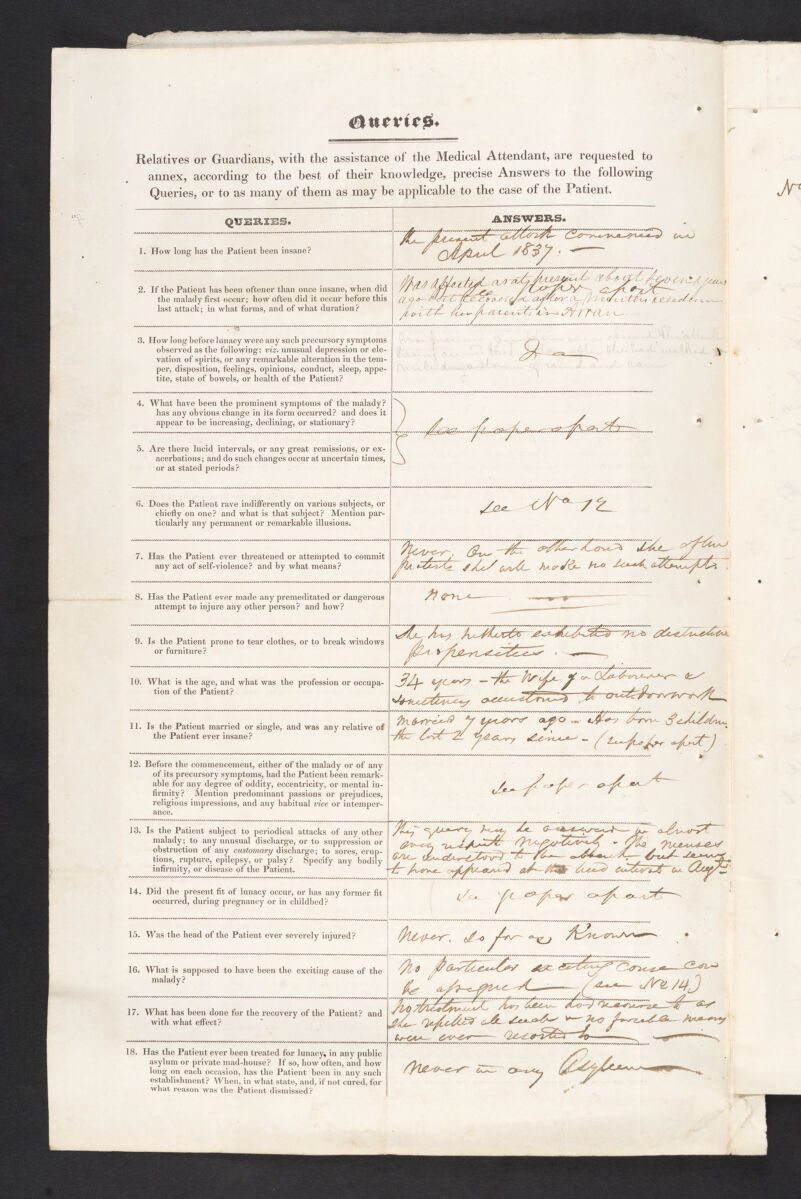 Queries.
Relatives or Guardians, with the assistance of the Medical Attendant, are requested to
annex, according to the best of their knowledge, precise Answers to the following
Queries, or to as many of them as may be applicable to the case of the Patient.
QUERIES.
ANSWERS.
1. How long has the Patient been insane?
the present attack commenced in
April 1837. —
2. If the Patient has been oftener than once insane, when did
the malady first occur; how often did it occur before this
last attack; in what forms, and of what duration?
Was affected as at present about seven years
paper apart
ago but recovered after a months residence
with her parents in Arran
3. How long before lunacy were any such precursory symptoms
observed as the following: viz. unusual depression or ele-
vation of spirits, or any remarkable alteration in the tem-
per, disposition, feelings, opinions, conduct, sleep, appe-
tite, state of bowels, or health of the Patient?
4. What have been the prominent symptoms of the malady?
has any obvious change in its form occurred? and does it
appear to be increasing, declining, or stationary?
See paper apart
5. Are there lucid intervals, or any great remissions, or ex-
acerbations; and do such changes occur at uncertain times,
or at stated periods?
6. Does the Patient rave indifferently on various subjects, or
chiefly on one? and what is that subject? Mention par-
ticularly any permanent or remarkable illusions.
see No 12
7. Has the Patient ever threatened or attempted to commit
any act of self-violence? and by what means?
Never. On the other hand she often
protests she will make no such attempts.
8. Has the Patient ever made any premeditated or dangerous
attempt to injure any other person? and how?
None
9. Is the Patient prone to tear clothes, or to break windows
or furniture?
She has hitherto exhibited no destructive
propensities. —
10. What is the age, and what was the profession or occupa-
tion of the Patient?
34 years – the Wife of a Labourer &
sometimes accustomed to outdoorwork
11. Is the Patient married or single, and was any relative of
the Patient ever insane?
Married 7 years ago – Has born 3 children
the last 2 years since – (see paper apart)
12. Before the commencement, either of the malady or of any
of its precursory symptoms, had the Patient been remark-
able for any degree of oddity, eccentricity, or mental in-
firmity? Mention predominant passions or prejudices,
religious impressions, and any habitual vice or intemper-
ance.
see paper apart
13. Is the Patient subject to periodical attacks of any other
malady; to any unusual discharge, or to suppression or
obstruction of any customary discharge; to sores, erup-
tions, rupture, epilepsy, or palsy? Specify any bodily
infirmity, or disease of the Patient.
This query may be answered in almost
every respect negatively. The menses
are understood to be absent but seem
to have appeared at the used interval in Augt
14. Did the present fit of lunacy occur, or has any former fit
occurred, during pregnancy or in childbed?
see paper apart
15. Was the head of the Patient ever severely injured?
Never. So far as Known
16. What is supposed to have been the exciting cause of the
malady?
No particular exciting cause can
be assigned (see No 14)
17. What has been done for the recovery of the Patient? and
with what effect?
No treatment has been had recourse to as
she repelled all such & no forcible means
were ever resorted to
18. Has the Patient ever been treated for lunacy, in any public
asylum or private mad-house? If so, how often, and how
long on each occasion, has the Patient been in any such
establishment? When, in what state, and, if not cured, for
what reason was the Patient dismissed?
Never in any Asylum